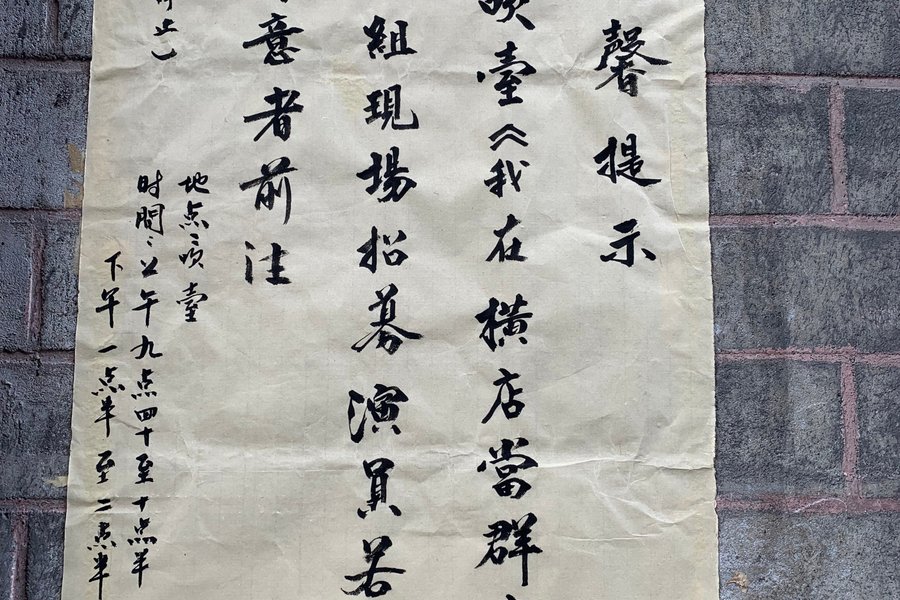 馨提示
臺《我在橫店當群
組現場招募演員若
意者前往
地点:唢臺
时間:上午九点四十至十点半
下午一点半至二点半
止)